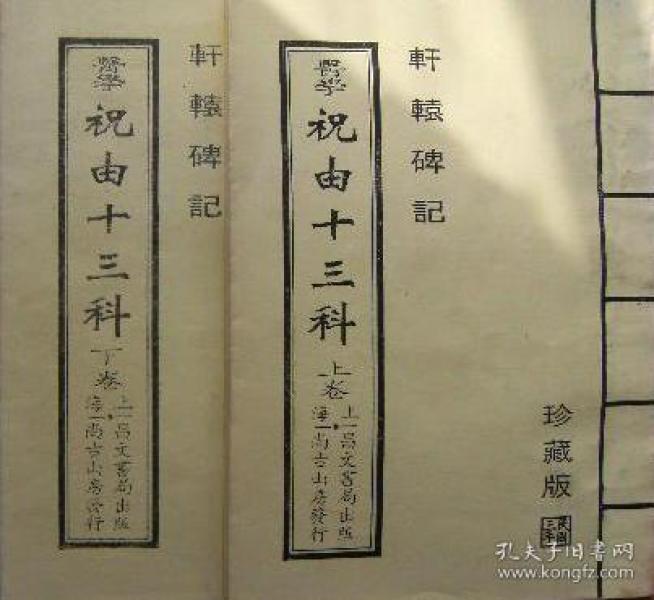 珍藏版
軒轅碑記
醫學
祝由十三科
上卷
上海
昌文書局出版
尚古山房發行
軒轅碑記
醫學
祝由十三科
下卷
上海
昌文書局出版
尚古山房發行
孔夫子旧书网
www.kongfz.com